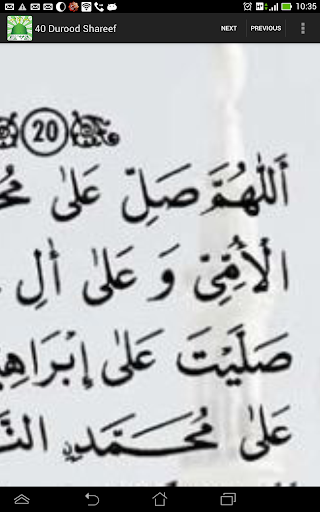 10:35
40 Durood Shareef
NEXT PREVIOUS
20
أَللّٰهُمَّ صَلِّ عَلٰى
الْأُمِّيِّ وَ عَلٰى أٰلِ
صَلَّيْتَ عَلٰى
عَلٰى مُحَمَّدِ